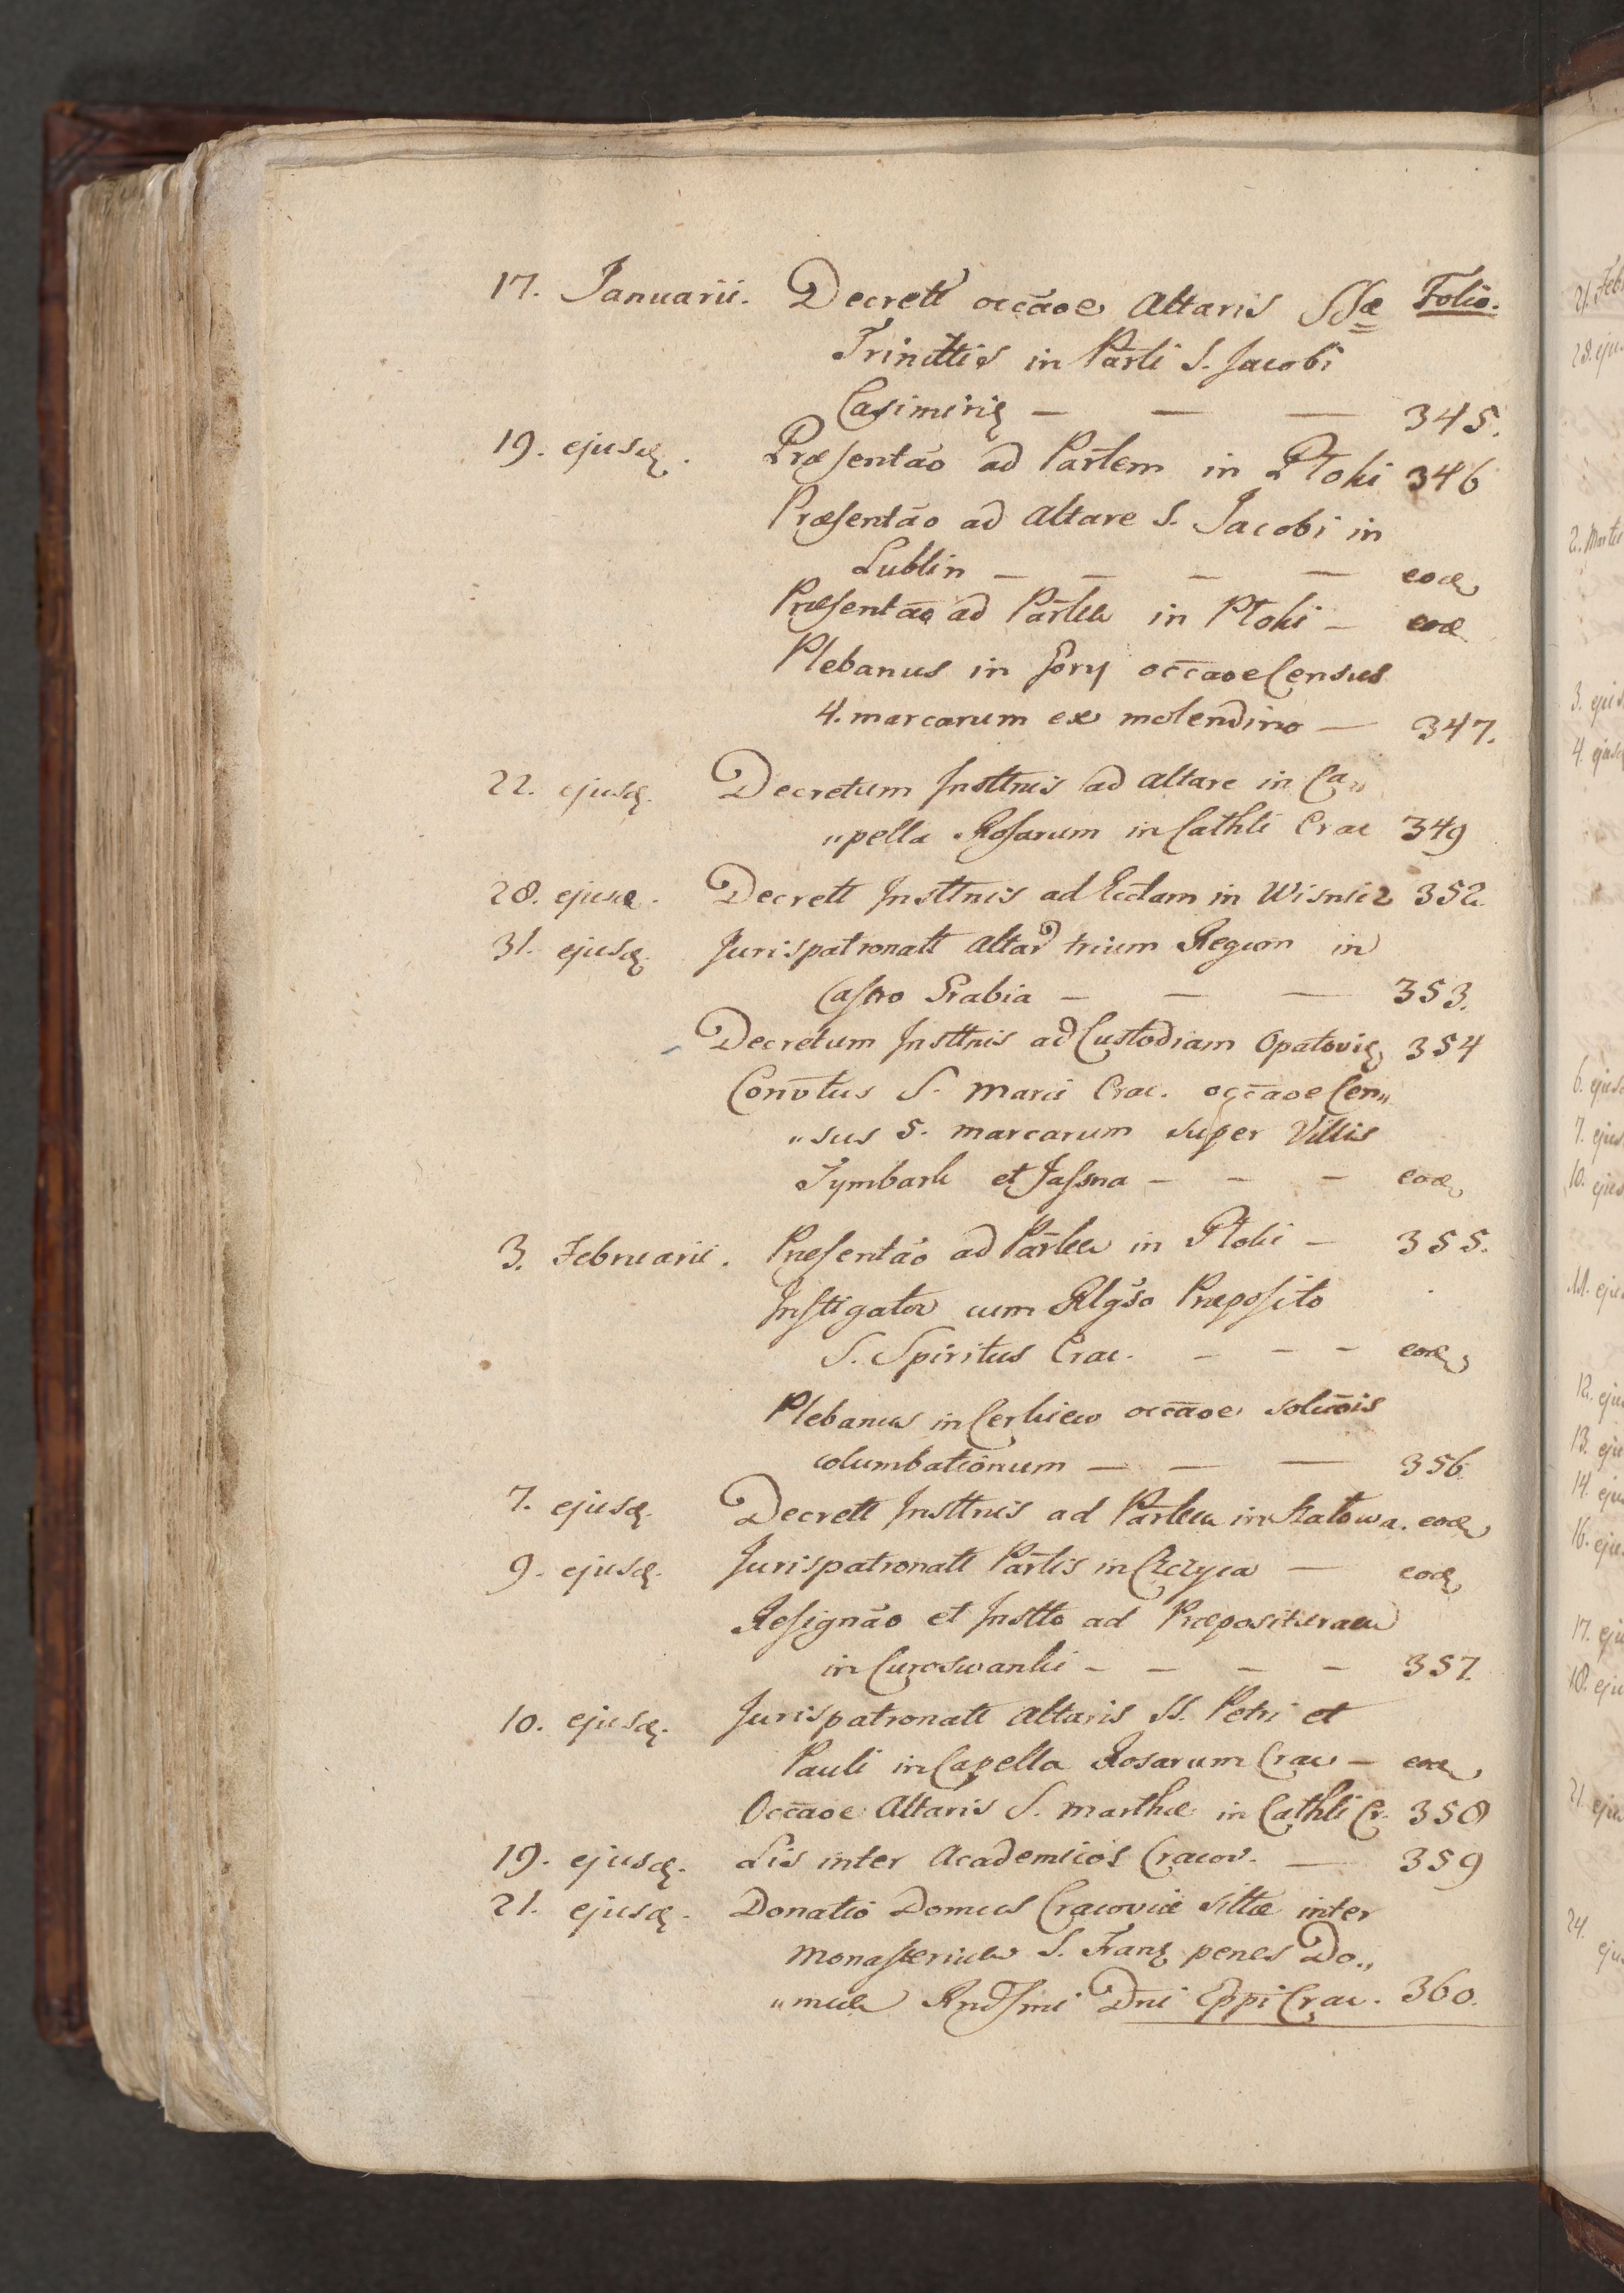 17. Januarii. Decrett occāoe Altaris SSæ Folio.
Trinittis in Parli S. Jacobi
Casimirię — — — 345.
19. ejusdę. Præsentāo ad Parlem in Ptoki 346
Præsentāo ad Altare S. Jacobi in
Lublin — — — — eodę
Præsentāo ad Parlem in Ptoki — eod
Plebanus in Gory occāoe Census
4. marcarum ex molendino — 347.
22. ejusdę. Decretum Insttnis ad Altare in Ca„
„pella Rosarum in Cathli Crac 349
28. ejusd. Decrett Insttnis ad Ecclam in Wisnicz 352.
31. ejusdę. Jurispatronatt Altar trium Regum in
Castro Grabia — — — 353.
Decretum Insttnis ad Custodiam Opatovię 354
Convtus S. Marci Crac. occāoe Cen„
„sus 5. marcarum super Villis
Tymbark et Jassna — — — eodę
3. Februarii. Præsentāo ad Parlem in Ptoki — 355.
Instigator cum Rlgso Præposito
S. Spiritus Crac. — — — eodę
Plebanus in Cerkiew occāoe soluōis
columbationum — — — 356.
7. ejusdę. Decrett Insttnis ad Parlem in Ratowa. eodę
9. ejusdę. Jurispatronatt Parlis in — eodę
Resignāo et Instto ad Præposituram
in Curoswanki — — — — 357.
10. ejusdę. Jurispatronatt Altaris SS. Petri et
Pauli in Capella Rosarum Crac — eodę
Occāoe Altaris S. Marthæ in Cathli Cr. 358
19. ejusdę. Lis inter Academicos Cracov. — 359
21. ejusdę. Donatio Domus Cracoviæ sittæ inter
Monasterium S. Franę penes Do„
„mum Rndssmi Dni Eppi Crac. 360.